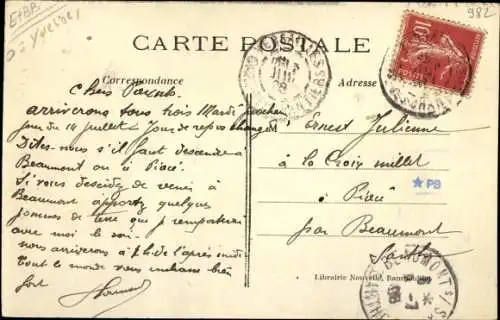 E+BB
982
à Yvelines
CARTE POSTALE
Correspondance
Adresse
Chers Parents
arriverons tous trois Mardi prochain
jour du 14 juillet jour de repos
Dites-nous s'il faut descendre à
Beaumont ou à Piacé
Si vous descidez de venir à
Beaumont apportez quelques
pommes de terre que j'remporterai
avec moi le soir
nous arriverons à de l'après midi
Tout le monde vous embrasse bien
fort
M Ernest Julienne
à la Croix millet
à Piacé
par Beaumont
Sarthe
★ PB
10
Librairie Nouvelle, Rambouillet
BEAUMONT S/S